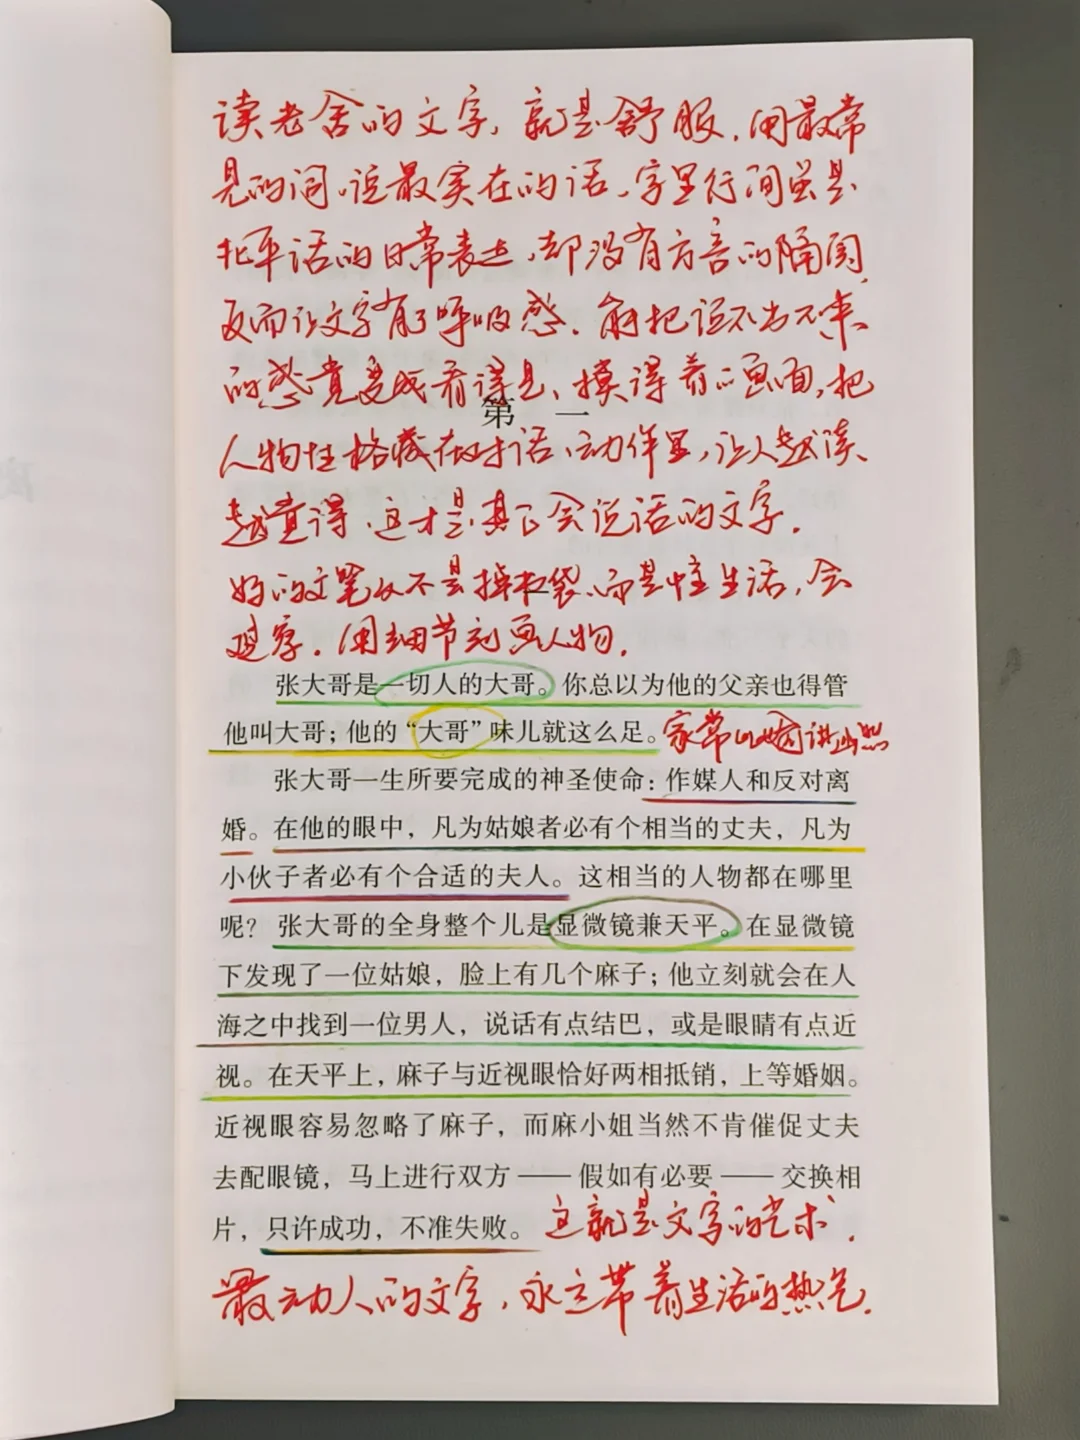 读老舍的文字,就是舒服.用最常
见的词、说最实在的话、字里行间虽是
北平话的日常表达,却没有方言的隔阂,
反而让文字有了呼吸感.能把说不出来
的感觉变成看得见、摸得着的画面,把
第一
人物性格藏在对话、动作里,让人越读、
越觉得、这才是真正会说话的文字.
好的文笔从不是掉书袋、而是懂生活,会
观察.用细节刻画人物.
一
张大哥是一切人的大哥。你总以为他的父亲也得管
他叫大哥；他的“大哥”味儿就这么足。家常
张大哥一生所要完成的神圣使命：作媒人和反对离
婚。在他的眼中，凡为姑娘者必有个相当的丈夫，凡为
小伙子者必有个合适的夫人。这相当的人物都在哪里
呢？张大哥的全身整个儿是显微镜兼天平。在显微镜
下发现了一位姑娘，脸上有几个麻子；他立刻就会在人
海之中找到一位男人，说话有点结巴，或是眼睛有点近
视。在天平上，麻子与近视眼恰好两相抵销，上等婚姻。
近视眼容易忽略了麻子，而麻小姐当然不肯催促丈夫
去配眼镜，马上进行双方——假如有必要——交换相
片，只许成功，不准失败。这就是文字的艺术.
最动人的文字,永远带着生活的热气.